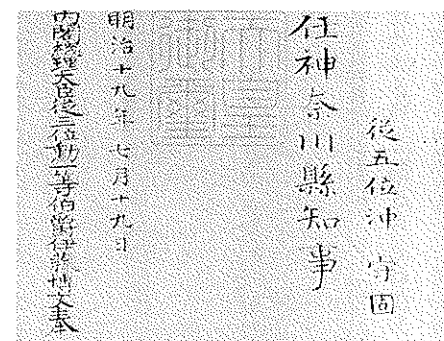 從五位沖守固
任神奈川縣知事
明治十九年七月十九日
内閣總理大臣從三位勳一等伯爵伊藤博文奉